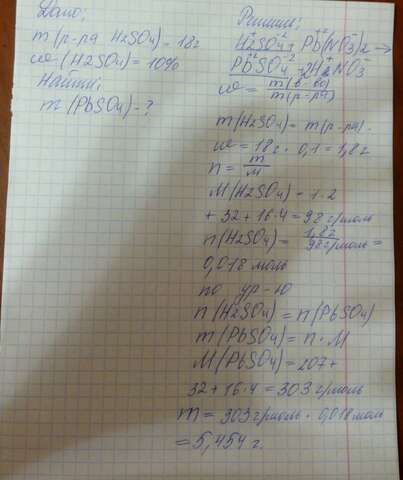 Дано:
m(р-ра H2SO4) = 18г
w(H2SO4) = 10%
Найти:
m(PbSO4) - ?
Решение:
H2SO4 + Pb(NO3)2 →
PbSO4 + 2HNO3
w = m(в-ва) / m(р-ра)
m(H2SO4) = m(р-ра) ·
w = 18г · 0,1 = 1,8г
n = m / M
M(H2SO4) = 1·2
+ 32 + 16·4 = 98 г/моль
n(H2SO4) = 1,8г / 98г/моль =
0,018 моль
по ур-ю
n(H2SO4) = n(PbSO4)
m(PbSO4) = n · M
M(PbSO4) = 207 +
32 + 16·4 = 303 г/моль
m = 303 г/моль · 0,018 моль
= 5,454 г.